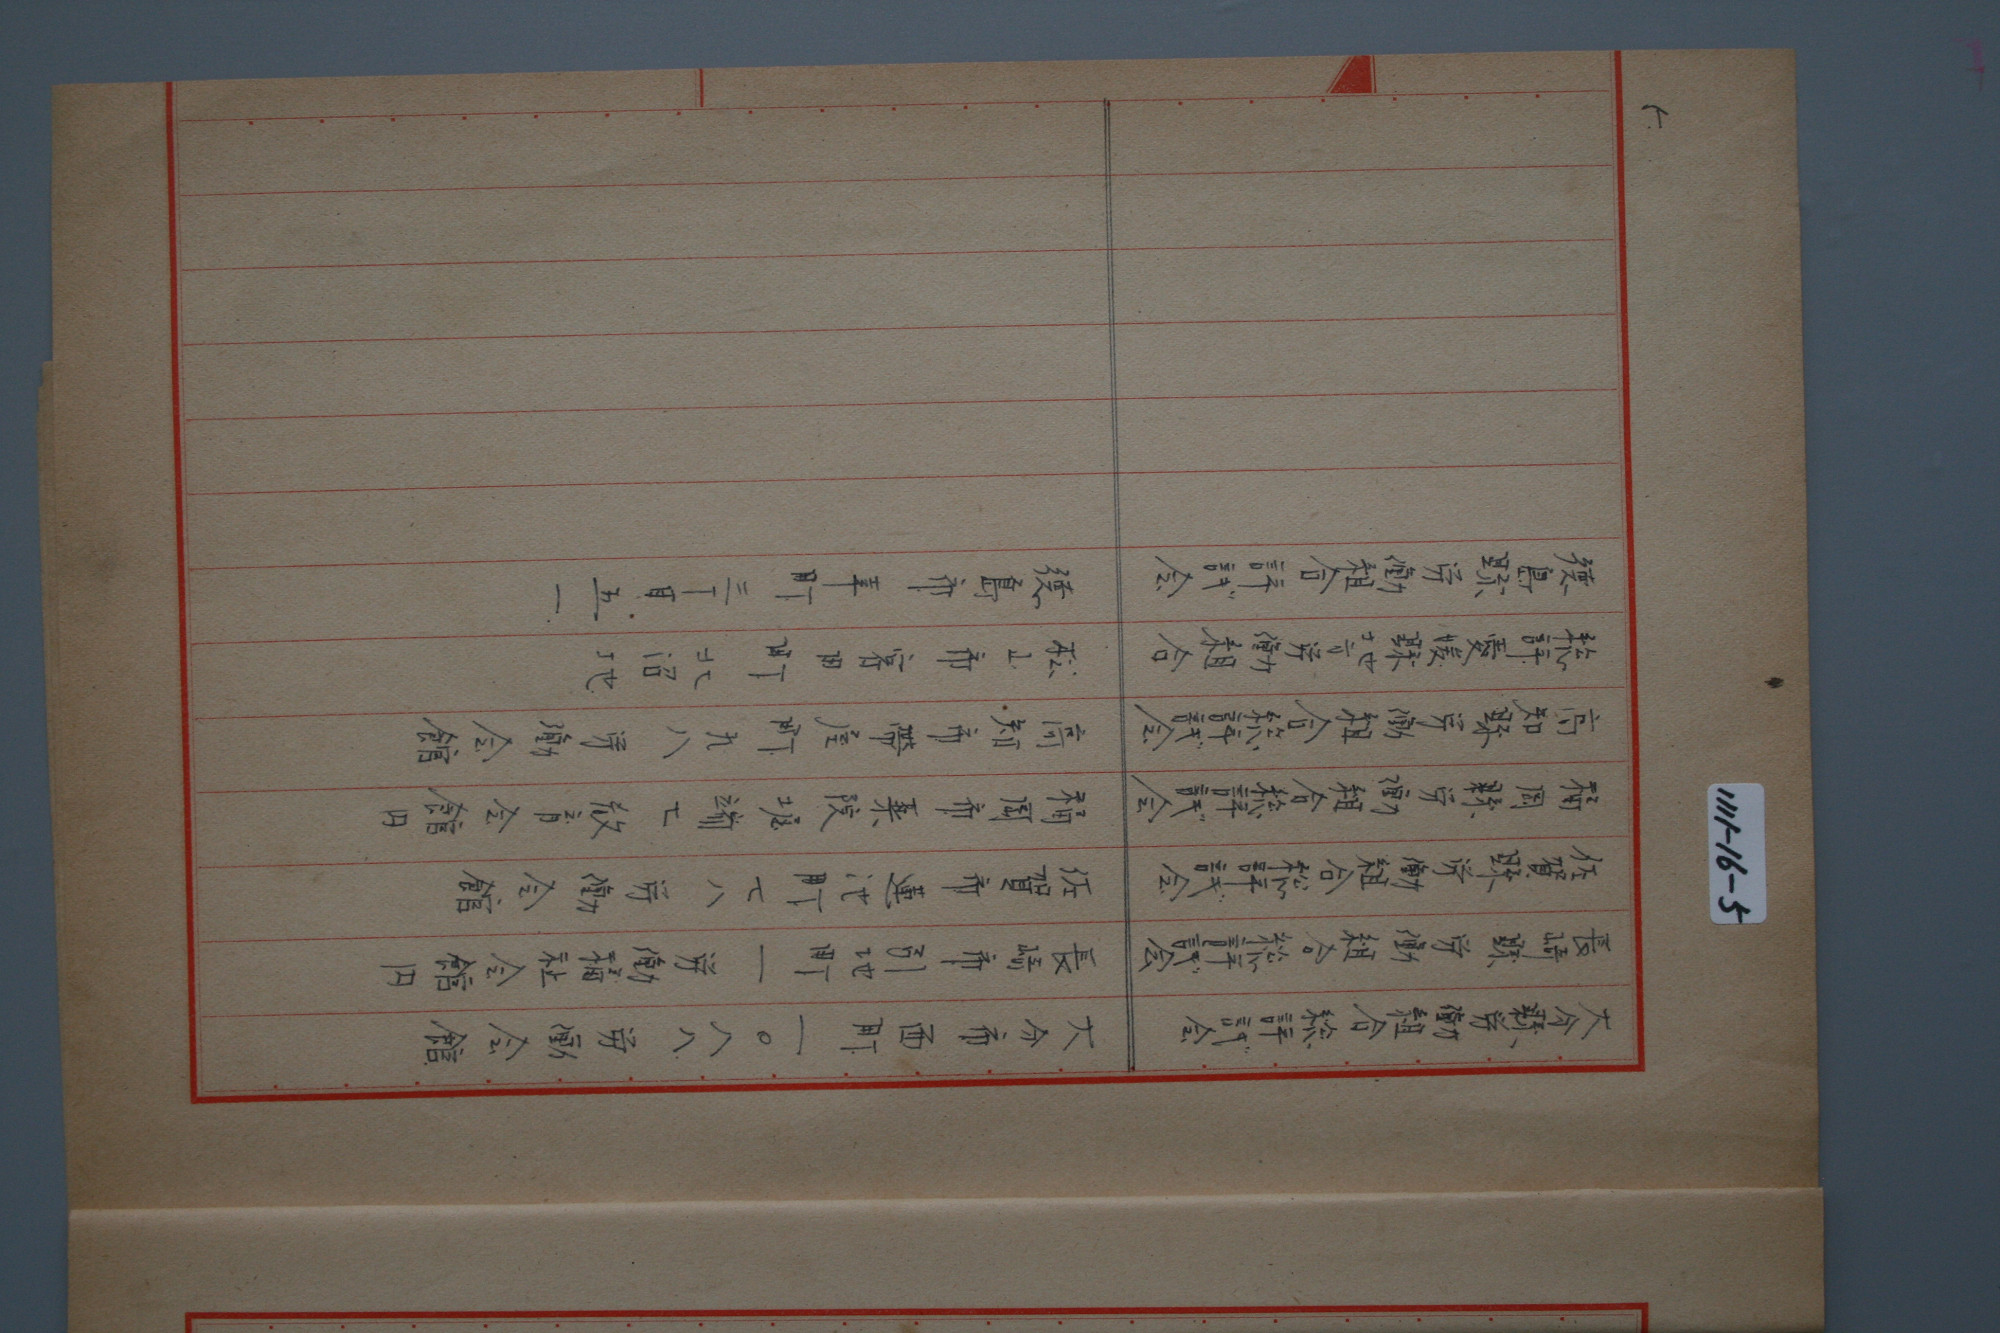 大分縣労働組合総評議会 大分市西町一〇八八 労働会館
長崎縣労働組合総評議会 長崎市引地町一 労働福祉会館内
佐賀縣労働組合総評議会 佐賀市蓮池町七八 労働会館
福岡縣労働組合総評議会 福岡市薬院堀端七 教育会館内
高知縣労働組合総評議会 高知市帯屋町九八 労働会館
総評愛媛縣地方労働組合 松山市宮田町
徳島縣労働組合評議会 徳島市幸町三丁目五一
1111-16-5